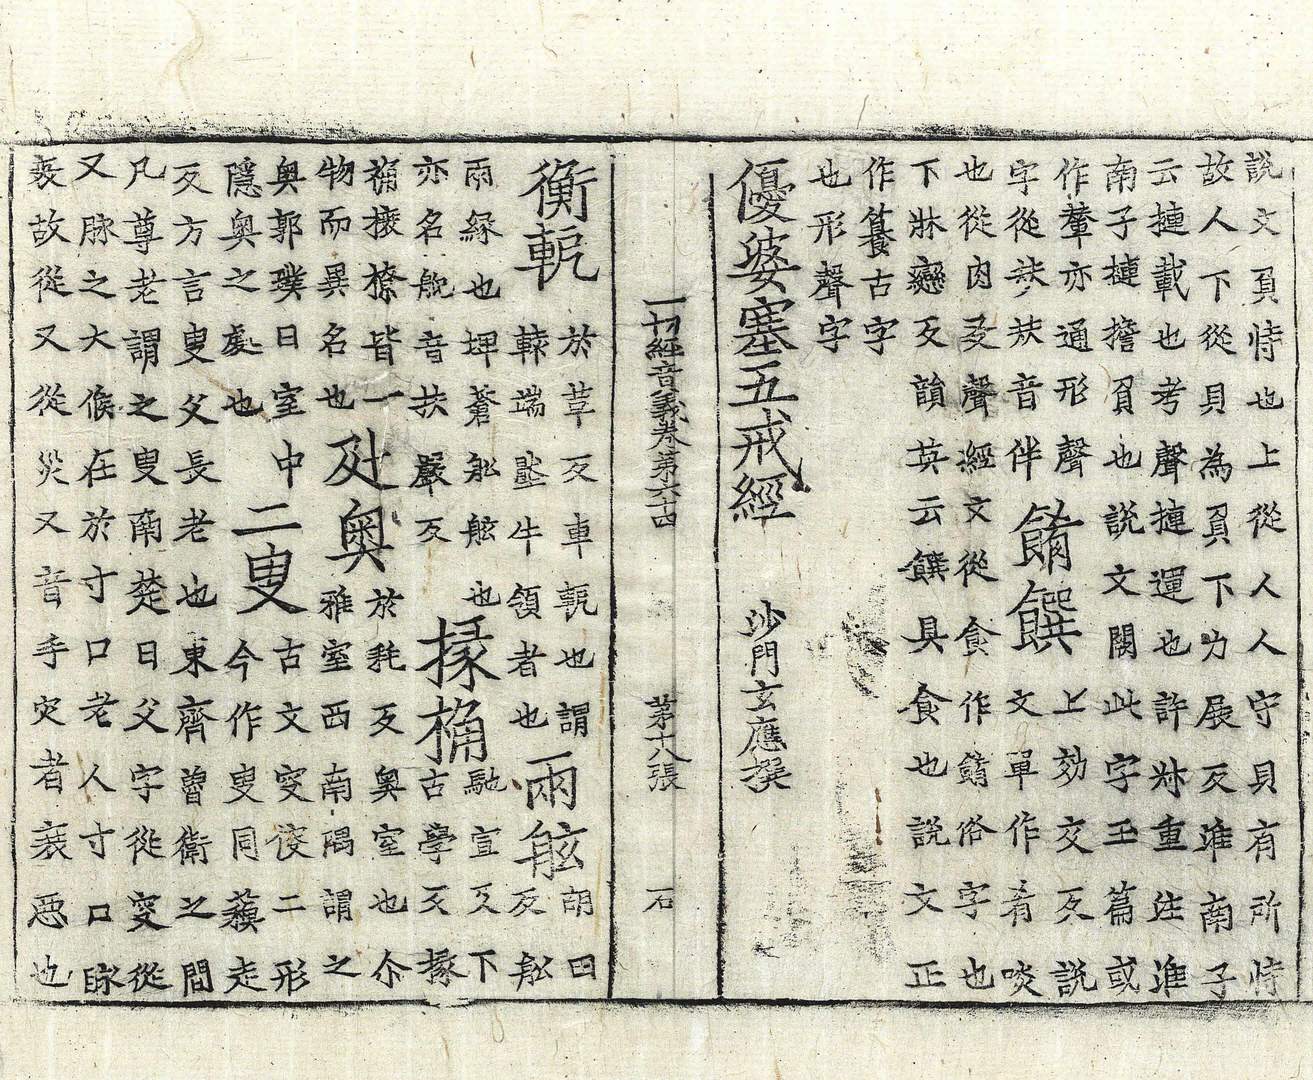 說文負恃也上從人人守貝有所恃
故人下從貝為負下力展反淮南子
云摙載也考聲摙運也許叔重注淮
南子摙擔負也說文闕此字玉篇或
作輦亦通形聲 餚饌 上効交反說
字從㚘㚘音伴 文單作肴啖
也從肉爻聲經文從食作餚俗字也
下牀戀反韻英云饌具食也說文正
作籑古字
也形聲字
優婆塞五戒經 沙門玄應撰
一切經音義卷第六十四 第十八張 石
衡軛 於革反車軛也謂 兩舷 胡田
轅端壓牛領者也 反舩
兩緣也埤蒼舩舷也 馳宣反下
亦名舧音扶嚴反 掾桷 古學反掾
桷榱橑皆一
物而異名也 𡊄奧 於耗反奧室也尒
雅室西南隅謂之
奧郭璞曰室中
隱奧之處也 二叟 古文叜傁二形
今作叟同蘓走
反方言叟父長老也東齊魯衛之間
凡尊老謂之叟南楚曰父字從叜從
又脉之大候在於寸口老人寸口脉
衰故從又從灾又音手灾者衰惡也